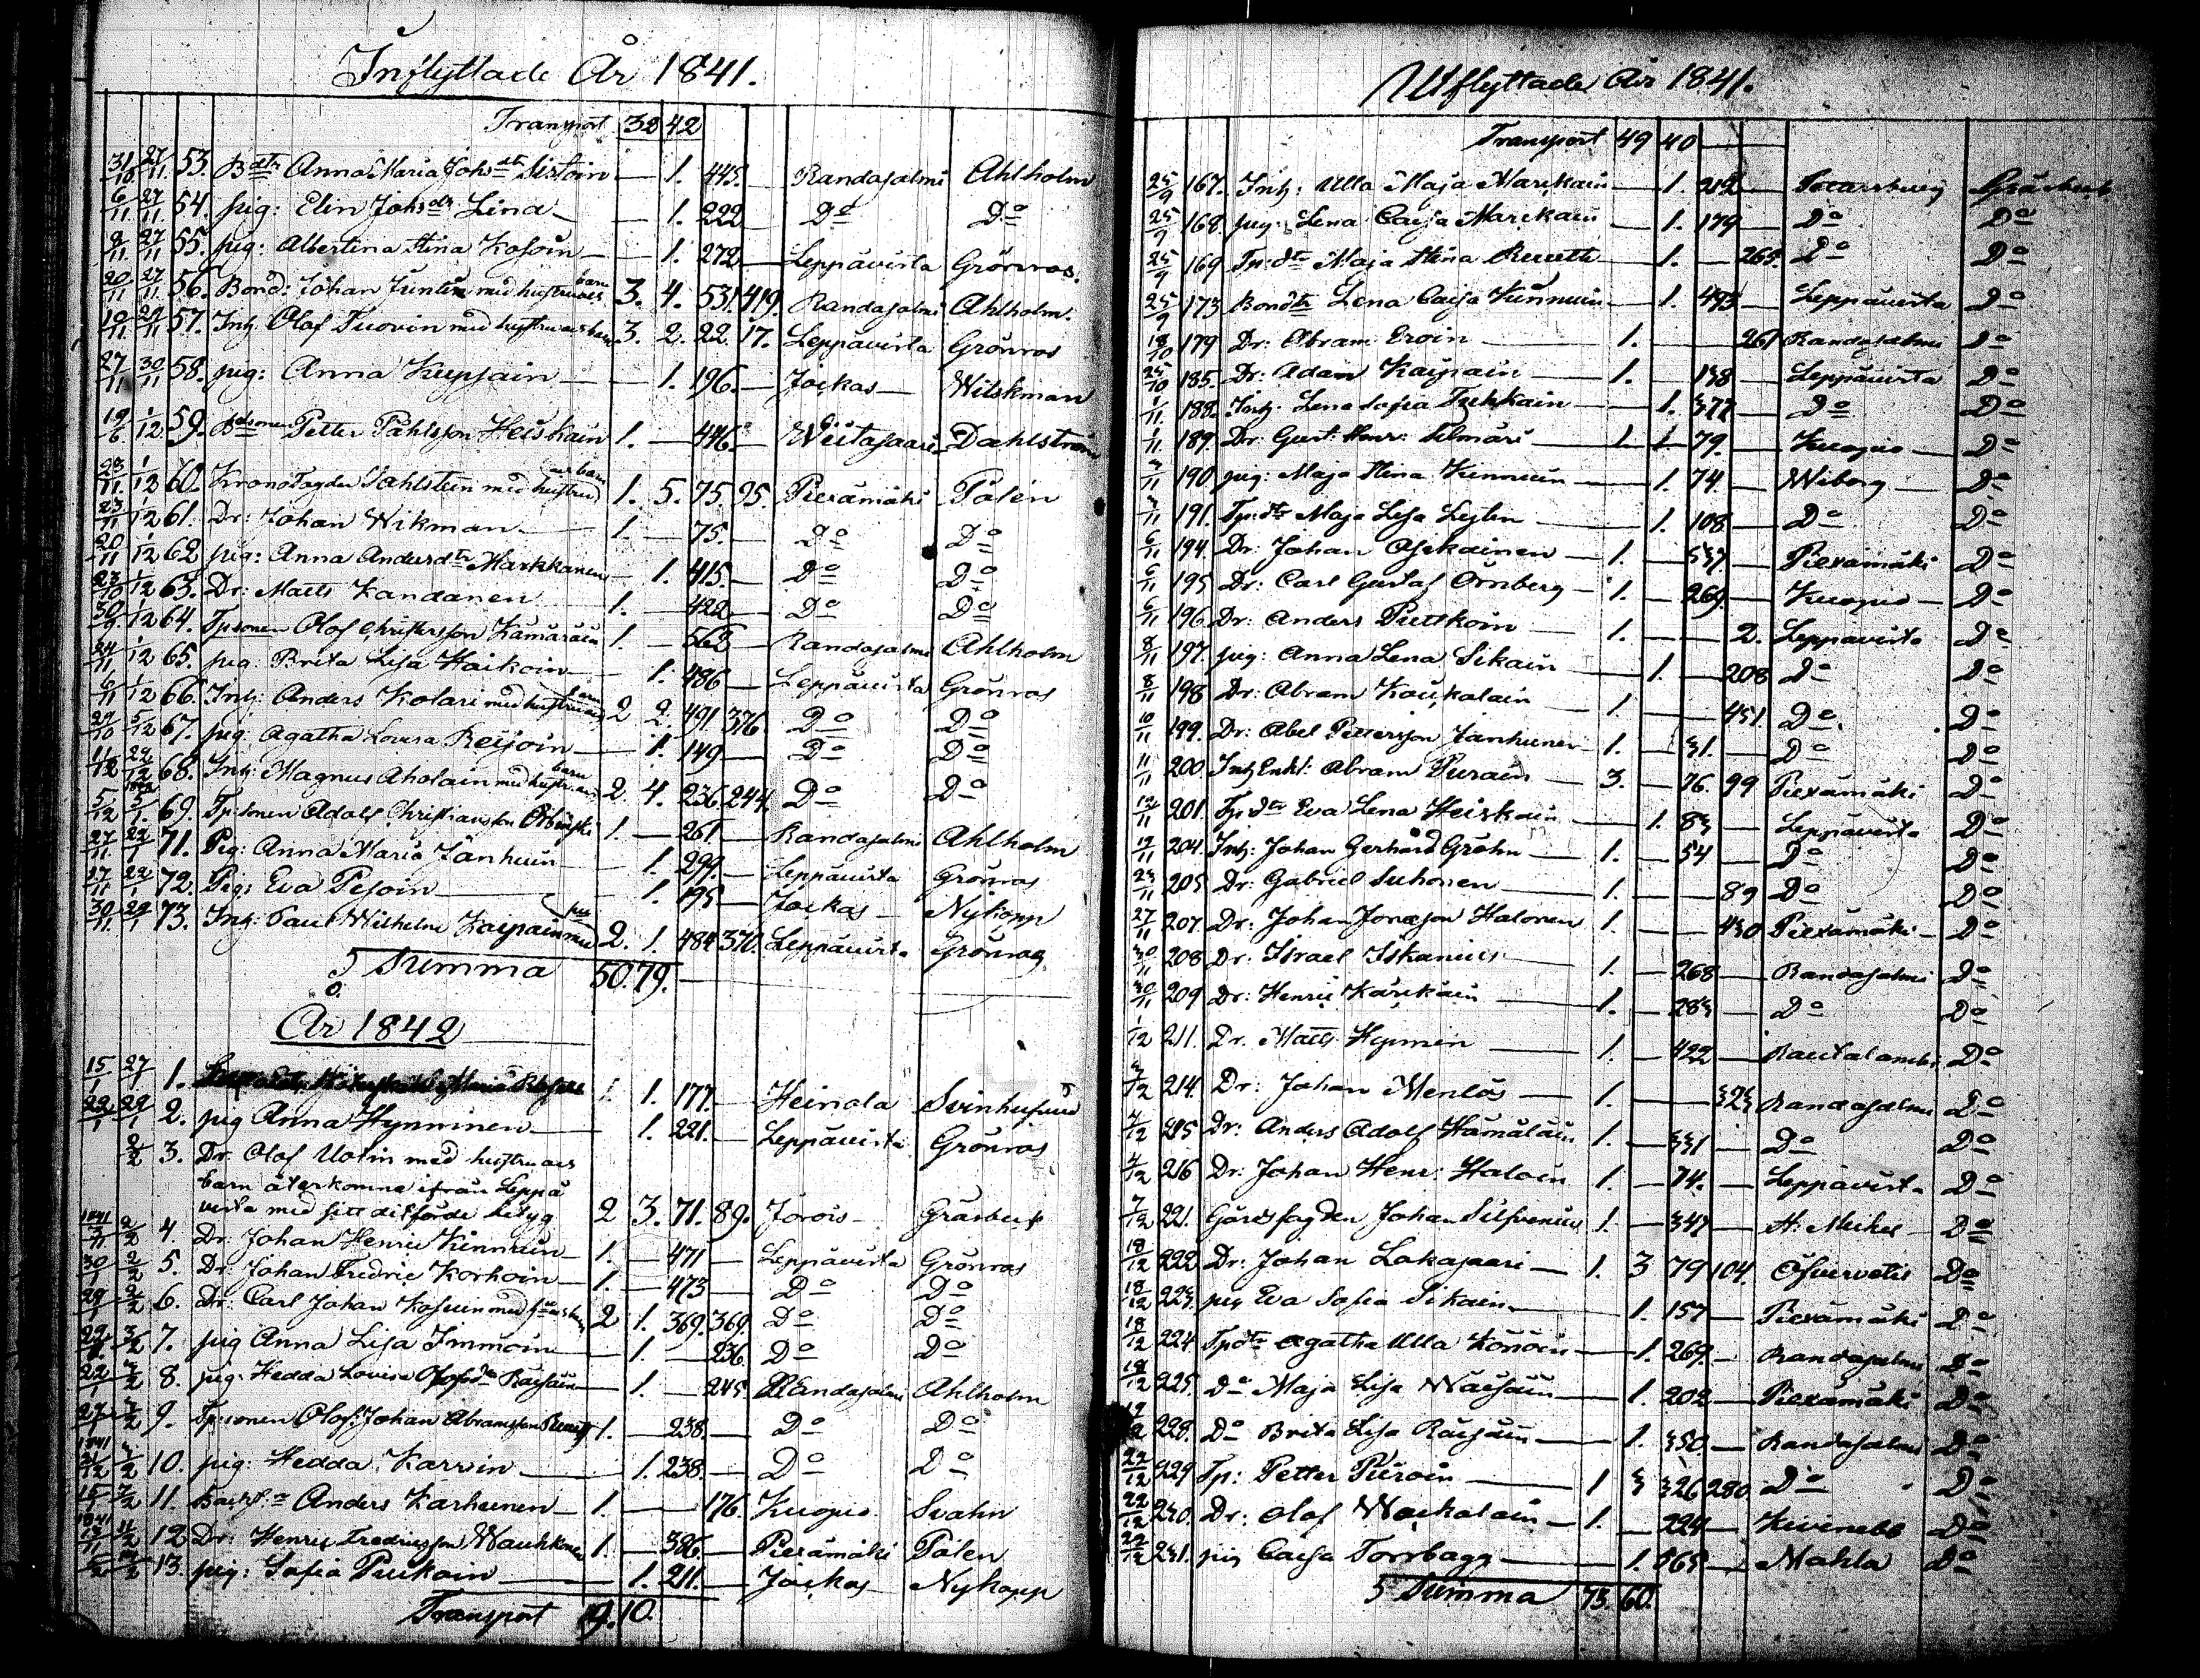 Inflyttade År 1841.
Transport 32 42
31/10 27/11 53. Bdtr Anna Maria Johsdtr Sistoin — 1. 445. — Randasalmi Ahlholm
6/11 27/11 54. pig: Elin Johsdr Lind — — 1. 222 — Do Do
9/11 27/11 55. pig: Albertina Stina Kosoin — — 1. 272 — Leppävirta Grönroos.
20/11 27/11 56. Bond: Johan Juntin med hustru o barn 3. 4. 531 419. Randasalmi Ahlholm.
10/11 29/11 57. Inh: Olof Tuovin med hustru o barn 3. 2. 22. 17. Leppävirta Grönros
27/11 30/11 58. pig: Anna Kupsain — — 1. 196. — Jockas — Wilskman
19/6 1/12 59. Petter Påhlsson Heiskain 1. — 446. — Wiitasaari Dahlström
23/11 1/12 60. Krono Fogden Dahlsteen med hustru o barn 1. 5. 75. 95. Piexämäki Polén
23/11 1/12 61. Dr: Johan Wikman — 1. — 75. — Do Do
20/11 1/12 62 pig: Anna Andersdtr Markkanen — 1. 415. — Do Do
23/10 1/12 63. Dr: Matts Kandanen 1. — 422 — Do Do
30/9 1/12 64. Tpsonen Olof Christersson Kämäräin 1. — 562 — Randasalmi Ahlholm
24/11 1/12 65. pig: Brita Lisa Haikoin — 1. 486 — Leppävirta Grönros
6/11 1/12 66. Inh: Anders Kolari med hustru o barn 2 2. 491 376 Do Do
29/10 5/12 67. pig: Agatha Lovisa Reijoin — 1. 149 — Do Do
11/12 22/12 68. Inh: Magnus Aholain med hustru o barn 2. 4. 236. 244. Do Do
5/12 5/1 69. Tpsonen Adolf Christiansson 1. — 261 — Randasalmi Ahlholm
27/11 22/1 71. Pig: Anna Maria Janhuin — 1. 299. — Leppävirta Grönros
17/11 22/1 72. Pig: Eva Pesoin — 1. 195 — Jockas — Nykopp
30/11 29/1 73. Inh: Paul Wilhelm Kaipain med 2. 1. 484 370. Leppävirta Grönros
Summa 50. 79.
År 1842
15/1 27/1 1. 1. 177. — Heinola Svinhufvud
22/1 29/1 2. pig Anna Hynninen — 1. 221. — Leppävirta Grönros
2/2 3. Dr Olof Uotin med hustru o
barn återkomne ifrån Leppä
virta med sitt dit förde betyg 2 3. 71. 89. Jorois — Gråsbeck
1841 2/2 4. Dr. Johan Henric Kinnuin 1. — 471 — Leppävirta Grönros
30/1 2/2 5. Dr: Johan Fredric Korhoin — 1. — 473 — Do Do
29/1 2/2 6. Dr: Carl Johan Kosuin med 2 1. 369. 369. Do Do
22/1 3/2 7. pig Anna Lisa Immoin — 1. — 236. Do Do
22/1 8. pig: Hedda Lovisa 1. — 245. Randasalmi Ahlholm
27/1 9. Tpsonen Olof Johan Abramsson 1. — 238. — Do Do
1841 31/12 10. pig: Hedda Karvin 1. 238. — Do Do
15/1 7/2 11. Anders Karhunen — 1. — 176. Kuopio Svahn
1841 11/2 12 Dr: Henric Fredricsson Wauhkonen 1. — 386. — Piexämäki Polen
13. pig: Sofia Puikoin — 1. 211. — Jockas — Nykopp
Transport 19. 10.
Utflyttade År 1841.
Transport 49 40
25/9 167. Inh: Ulla Maja Marikain — 1. 212 — Gråsbeck
25/9 168. pig: Lena Caisa Marikain — 1. 179 — Do Do
25/9 169 Tp:dtr Maja Stina — 1. — 265. Do Do
25/9 173 Bondtr Lena Caisa Kinnuin — 1. 493 — Leppävirta Do
18/10 179 Dr: Abram Eroin — 1. — 261 Randasalmi Do
25/10 185. Dr: Adam Kaipain — 1. — 138 — Leppävirta Do
1/11 188. Inh: Lena Sofia Tuhkain — 1. 377 — Do Do
1/11 189. Dr: Gust: Henr: Selmäri — 1 1. 79. — Kuopio — Do
190 pig: Maja Stina Kinnuin — 1. 74. — Wiborg — Do
191. Tp:dtr Maja Lisa — 1. 108. — Do Do
6/11 194. Dr: Johan Asikainen — 1. — 537 — Piexämäki Do
6/11 195 Dr: Carl Gustaf Örnberg — 1. — 269. — Kuopio — Do
6/11 196. Dr: Anders Puttkoin — 1. — — 2. Leppävirta Do
8/11 197. pig: Anna Lena Sikain — 1. — 208 Do Do
8/11 198 Dr: Abram Kaukolain — 1. — 451. Do Do
10/11 199. Dr: Abel Pettersson Janhunen — 1. — 31. — Do Do
11/11 200. Inh Enkl: Abram Purain — 3. — 76. 99 Piexämäki Do
12/11 201. Tp:dtr Eva Lena Heiskain — 1. 83 — Leppävirta Do
17/11 204. Inh: Johan Gerhard Gröhn — 1. — 54 — Do Do
23/11 205 Dr: Gabriel Suhonen — 1. — — 89 Do Do
27/11 207. Dr: Johan Jonasson Halonen 1. — — 430 Piexämäki — Do
30/11 208 Dr: Israel Iskanius — 1. — 268 — Randasalmi Do
30/11 209 Dr: Henric Karikain — 1. — 283 — Do Do
1/12 211. Dr. Matts Hyvinin — 1. — 422 — Rautalambi Do
3/12 214. Dr: Johan Menlös — 1. — — 323 Randasalmi Do
4/12 215 Dr: Anders Adolf Hämäläin 1. — 331 — Do Do
4/12 216 Dr: Johan Henr: Haloin 1. — 74. — Leppävirta Do
7/12 221. Gårdsfogden Johan Silfvenius 1. — 347 — St: Michel — Do
18/12 222 Dr: Johan Lakasaari — 1. 3 79 104. Do
18/12 223. pig Eva Sofia Sikain — 1. 157 — Piexämäki Do
18/12 224 Tpdtr Agatha Ulla Könöin — 1. 269. — Randasalmi Do
18/12 225. Do Maja Lisa Wäisäin — 1. 202 — Piexämäki Do
228. Do Brita Lisa Räisäin — 1. 350 — Randasalmi Do
22/12 229 Tp: Petter Puroin — 1 3 326 280 Do Do
22/12 230. Dr: Olof Nockalain — 1. — 224 — Kivinebb Do
22/12 231. pig Caisa Torrbagg — 1. 565 — Mohla Do
Summa 73. 60.